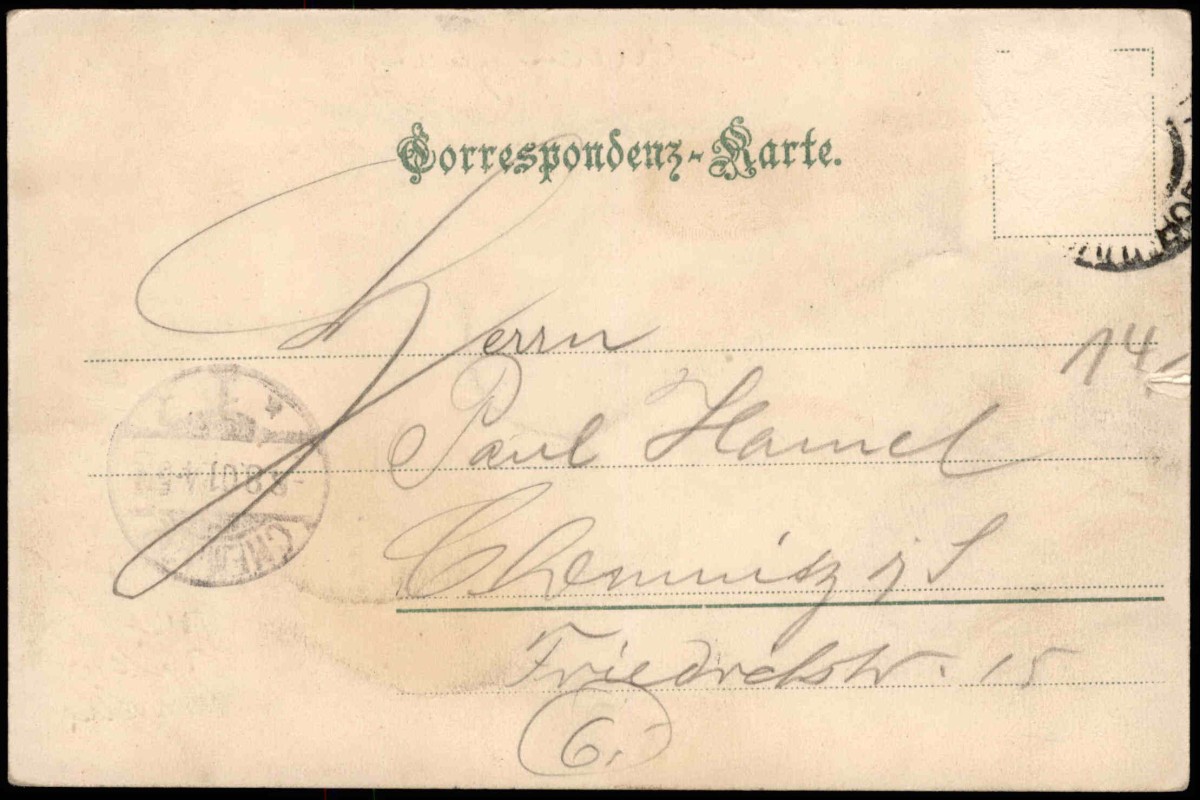 Correspondenz-Karte.
Herrn
14
Paul Hamel
Chemnitz i/S
Friedrichstr. 15
6.
-8.8.01.4-5N
CHEM